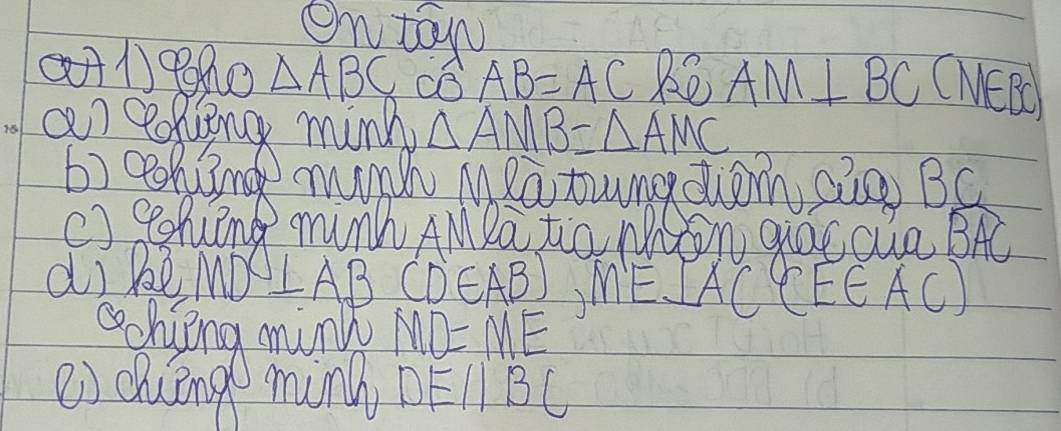 Ôn tập
1) Cho △ABC có AB=AC kẻ AM⊥BC (M∈BC)
a) Chứng minh △AMB=△AMC
b) Chứng minh M là trung điểm của BC
c) Chứng minh AM là tia phân giác của BAC
d) kẻ MD⊥AB (D∈AB), ME⊥AC (E∈AC)
Chứng minh MD=ME
e) chứng minh DE//BC